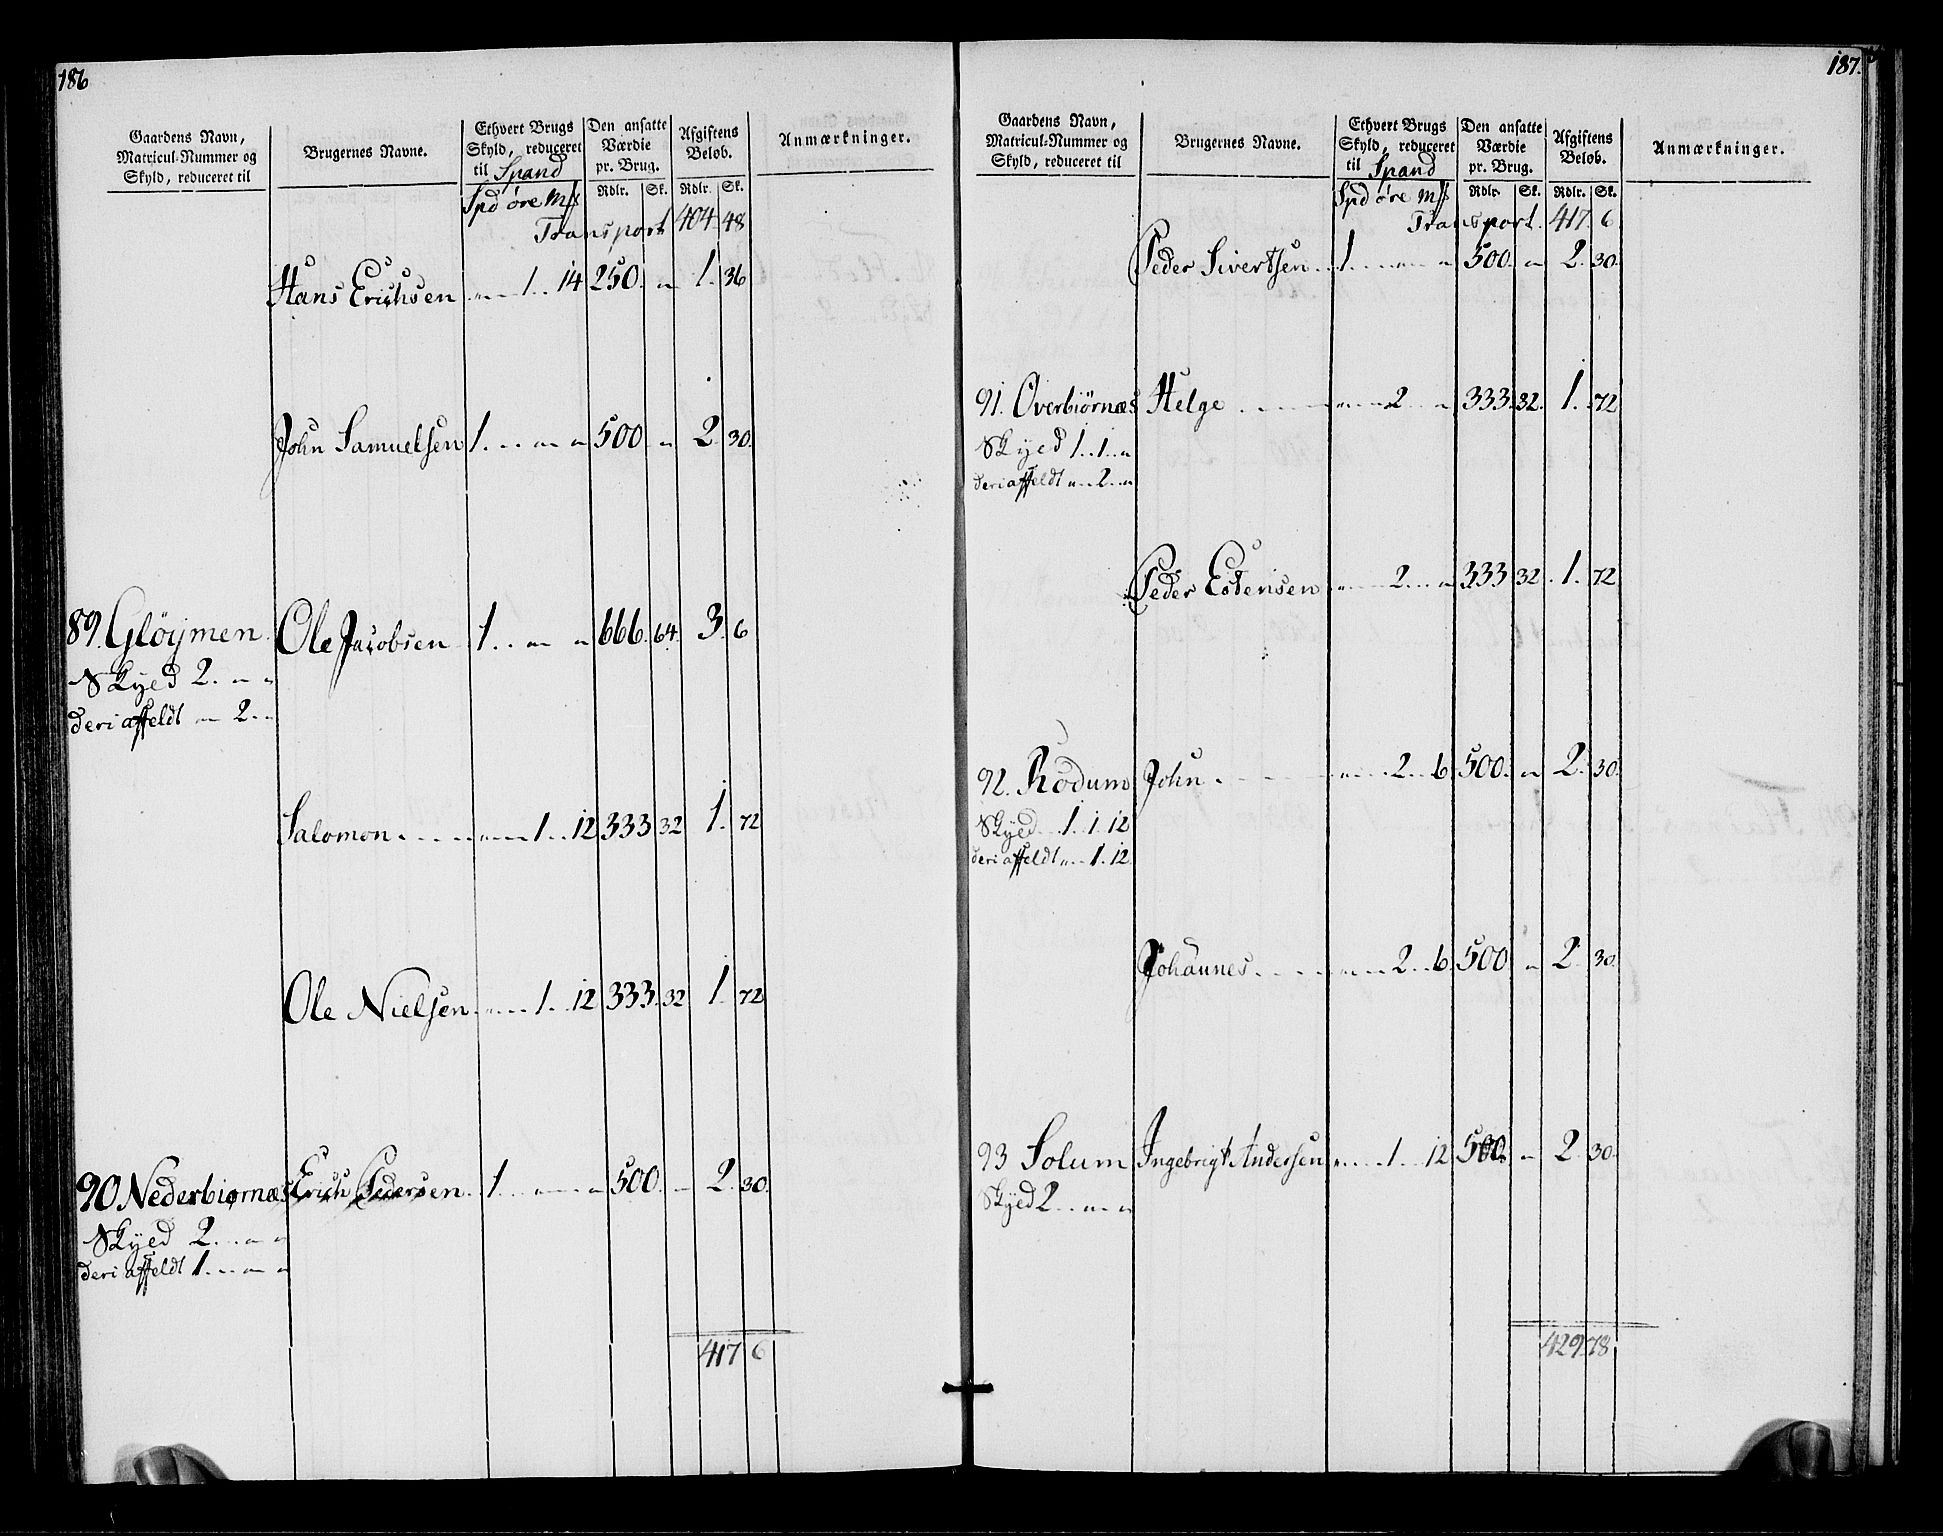 186
Gaardens Navn, Matricul-Nummer og Skyld, reduceret til
Brugernes Navne.
Ethvert Brugs Skyld, reduceret til Spand
Den ansatte Værdie pr. Brug.
Afgiftens Beløb.
Anmærkninger.
Spd øre mſ Rdlr. Sk. Rdlr. Sk.
Transport 404 48
Hans Erichsen „ 1 14 250 „ 1 36
John Samuelsen 1 „ „ 500 „ 2 30
89. Gløymen Ole Jacobsen 1 „ „ 666 64 3 6
Skyed 2 „ „
deri affeldt „ 2 „
Salomon „ 1 12 333 32 1 72
Ole Nielsen „ 1 12 333 32 1 72
90 Nederbiørnæs Erich Pedersen 1 „ „ 500 „ 2 30
Skyed 2 „ „
deri affeldt 1 „ „
417 6
187.
Gaardens Navn, Matricul-Nummer og Skyld, reduceret til
Brugernes Navne.
Ethvert Brugs Skyld, reduceret til Spand
Den ansatte Værdie pr. Brug.
Afgiftens Beløb.
Anmærkninger.
Spd øre mſ Rdlr. Sk. Rdlr. Sk.
Transport. 417 6
Peder Sivertsen 1 „ „ 500 „ 2 30
91. Overbiørnæs Helge „ 2 „ 333 32 1 72
Skyed 1 1 „
deri affeldt „ 2 „
Peder Estensen „ 2 „ 333 32 1 72
92. Rodum John „ 2 6 500 „ 2 30
Skyed 1 1 12
deri affeldt „ 1 12
Johannes „ 2 6 500 „ 2 30
93 Solum Ingebrigt Andersen „ 1 12 500 „ 2 30
Skyed 2 „ „
429 78